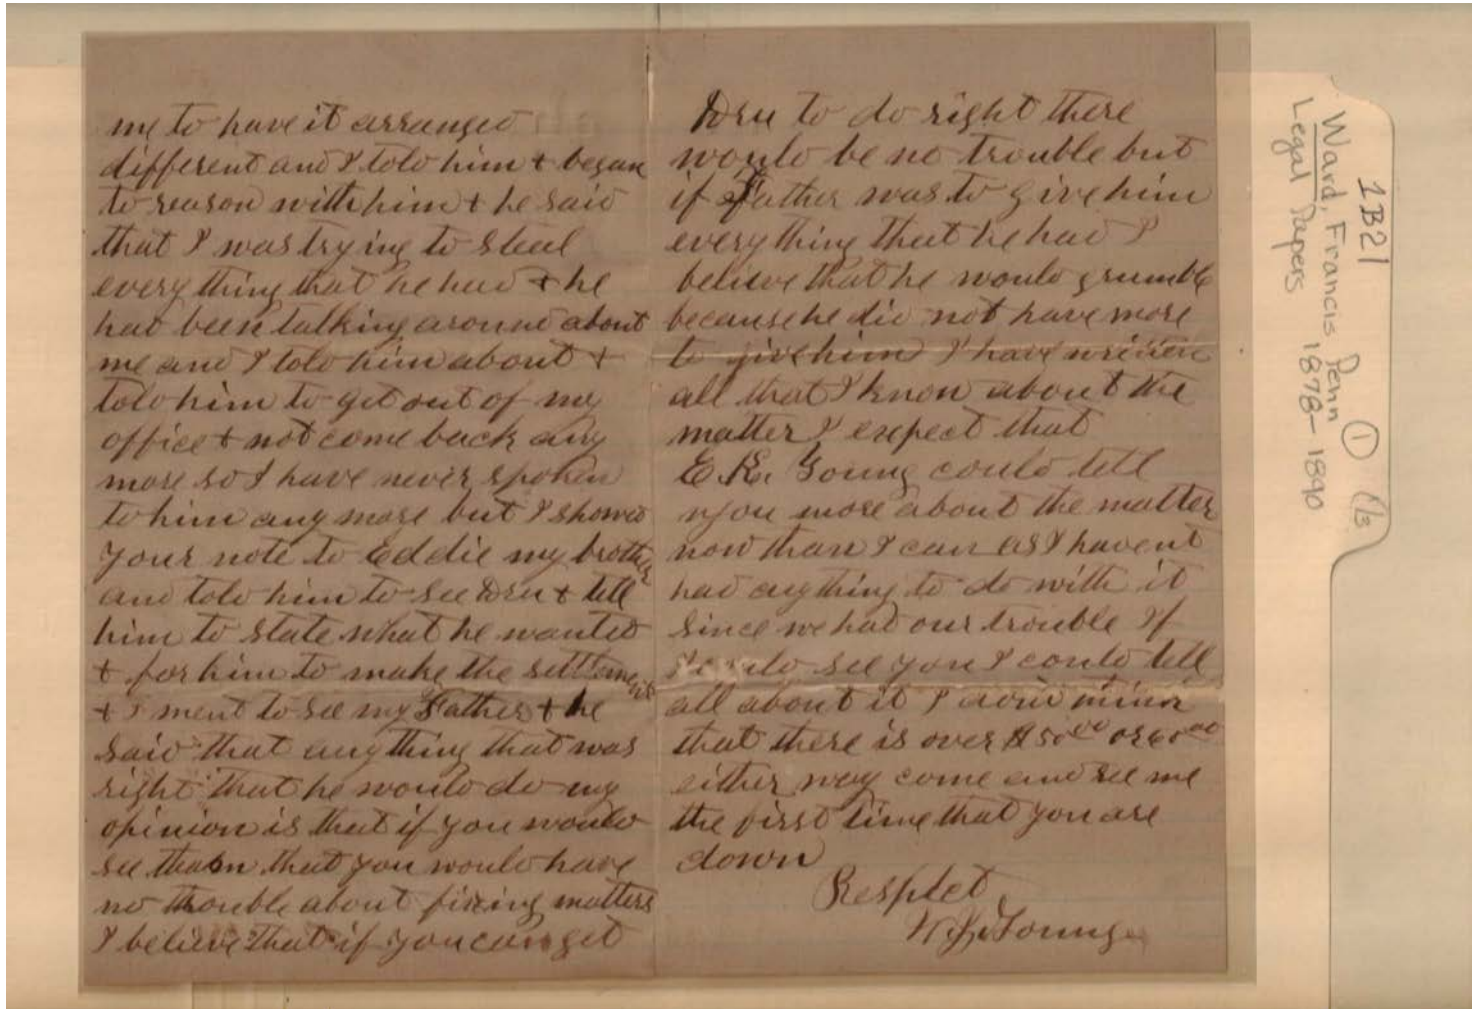 me to have it arranged
different and I told him & began
to reason with him & he said
that I was trying to steal
every thing that he had & he
had been talking around about
me and I told him about &
told him to get out of my
office & not come back any
more so I have never spoken
to him any more but I showed
your note to Eddie my brother
and told him to see Dru & tell
him to state what he wanted
& for him to make the settlement
& I went to see my Father & he
said that anything that was
right that he would do my
opinion is that if you would
see them that you would have
no trouble about fixing matters
I believe that if you can get
Dru to do right there
would be no trouble but
if Father was to give him
every thing that he had I
believe that he would grumble
because he did not have more
to give him I have written
all that I know about the
matter I expect that
E. R. Young could tell
you more about the matter
now than I can as I havent
had any thing to do with it
since we had our trouble If
I could see you I could tell
all about it I
that there is over $50 00 or 60 00
either way come and see me
the first time that you are
down
Respfct
Young
1B21
Ward, Francis Penn
Legal Papers 1878-1890
1
1/3